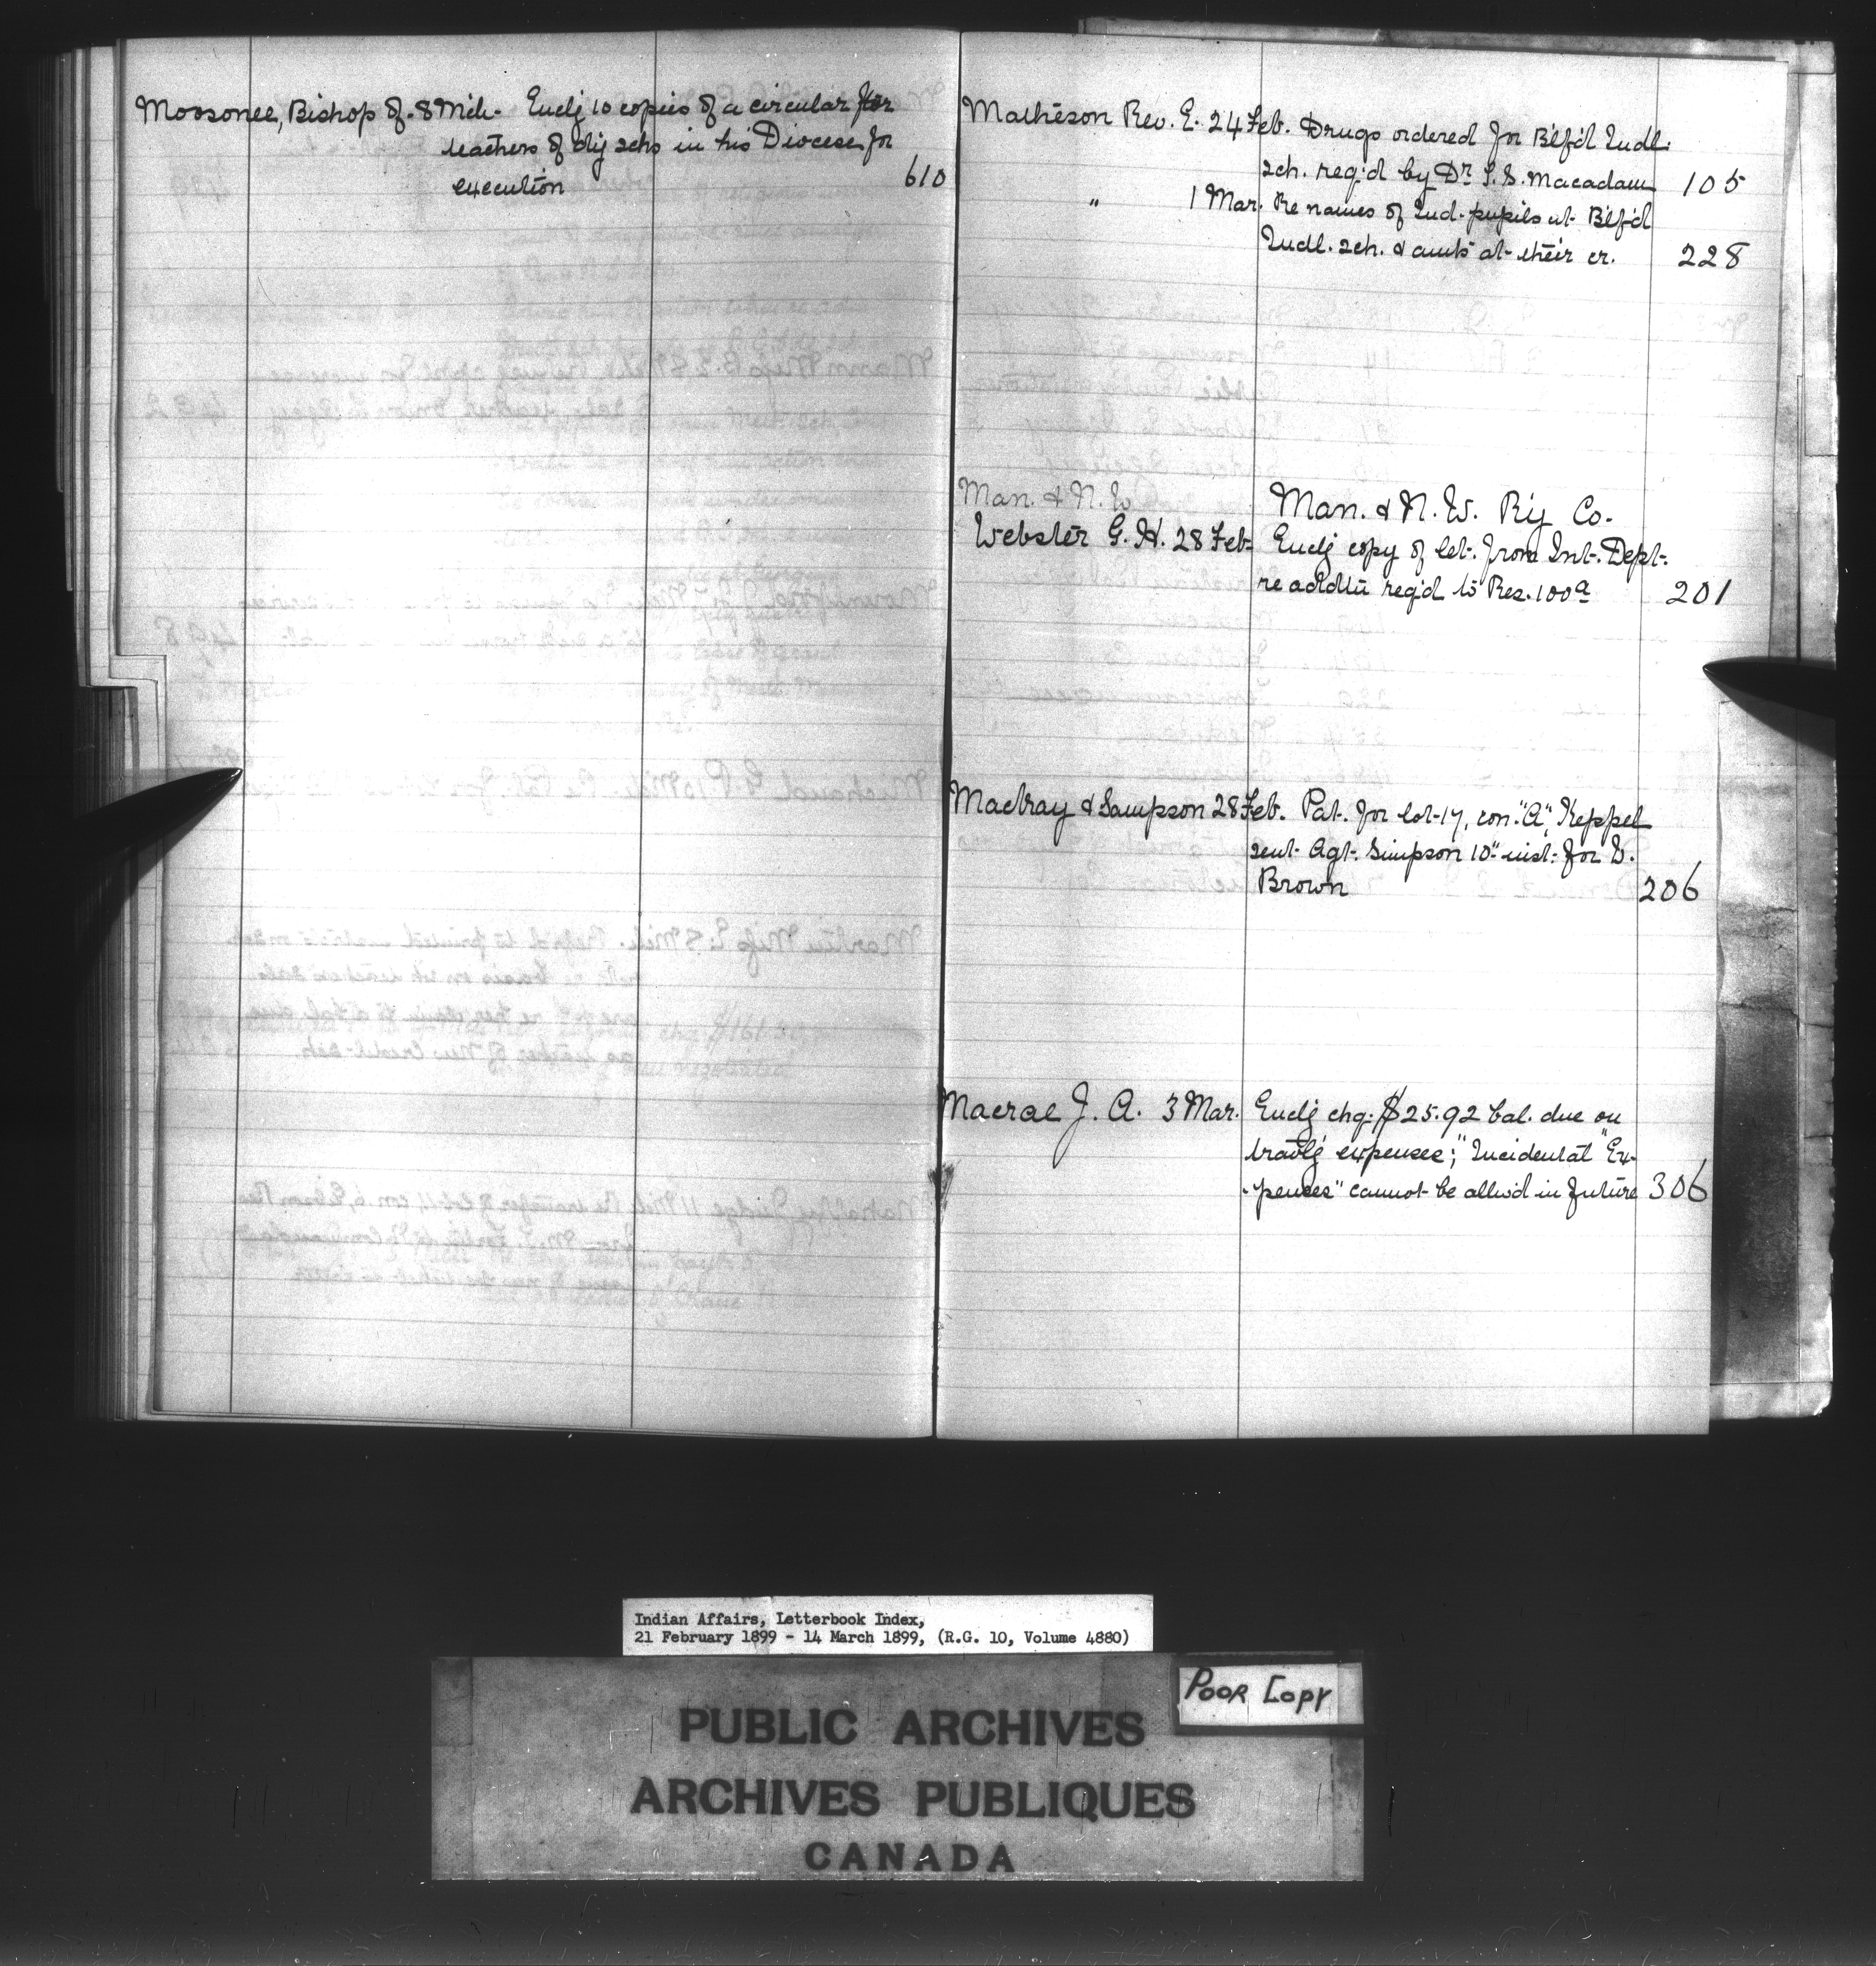 Moosonee, Bishop of. 8 Mch. Encl'g 10 copies of a circular for
teachers of dif schs in his Diocese for
execution 610
Matheson Rev. E. 24 Feb. Drugs ordered for B'lf'd Indl.
sch. req'd by Dr. S. S. Macadam 105
" 1 Mar. Re names of Ind. pupils at B'lf'd
Indl. sch. & amts at their cr. 228
Man. & N. W
Man. & N. W. R'y Co.
Webster G. H. 28 Feb. Encl'g copy of let. from Int. Dept.
re addtn req'd to Res. 100a 201
Mackay & Sampson 28 Feb. Pat. for lot 17, con. "A", Keppel
sent Agt. Simpson 10" inst. for
Brown 206
Macrae J. A. 3 Mar. Encl'g chq. $25.92 bal. due on
travl'g expenses; "Incidental Ex-
-penses" cannot be allw'd in future 306
Indian Affairs, Letterbook Index,
21 February 1899 - 14 March 1899, (R.G. 10, Volume 4880)
Poor Copy
PUBLIC ARCHIVES
ARCHIVES PUBLIQUES
CANADA